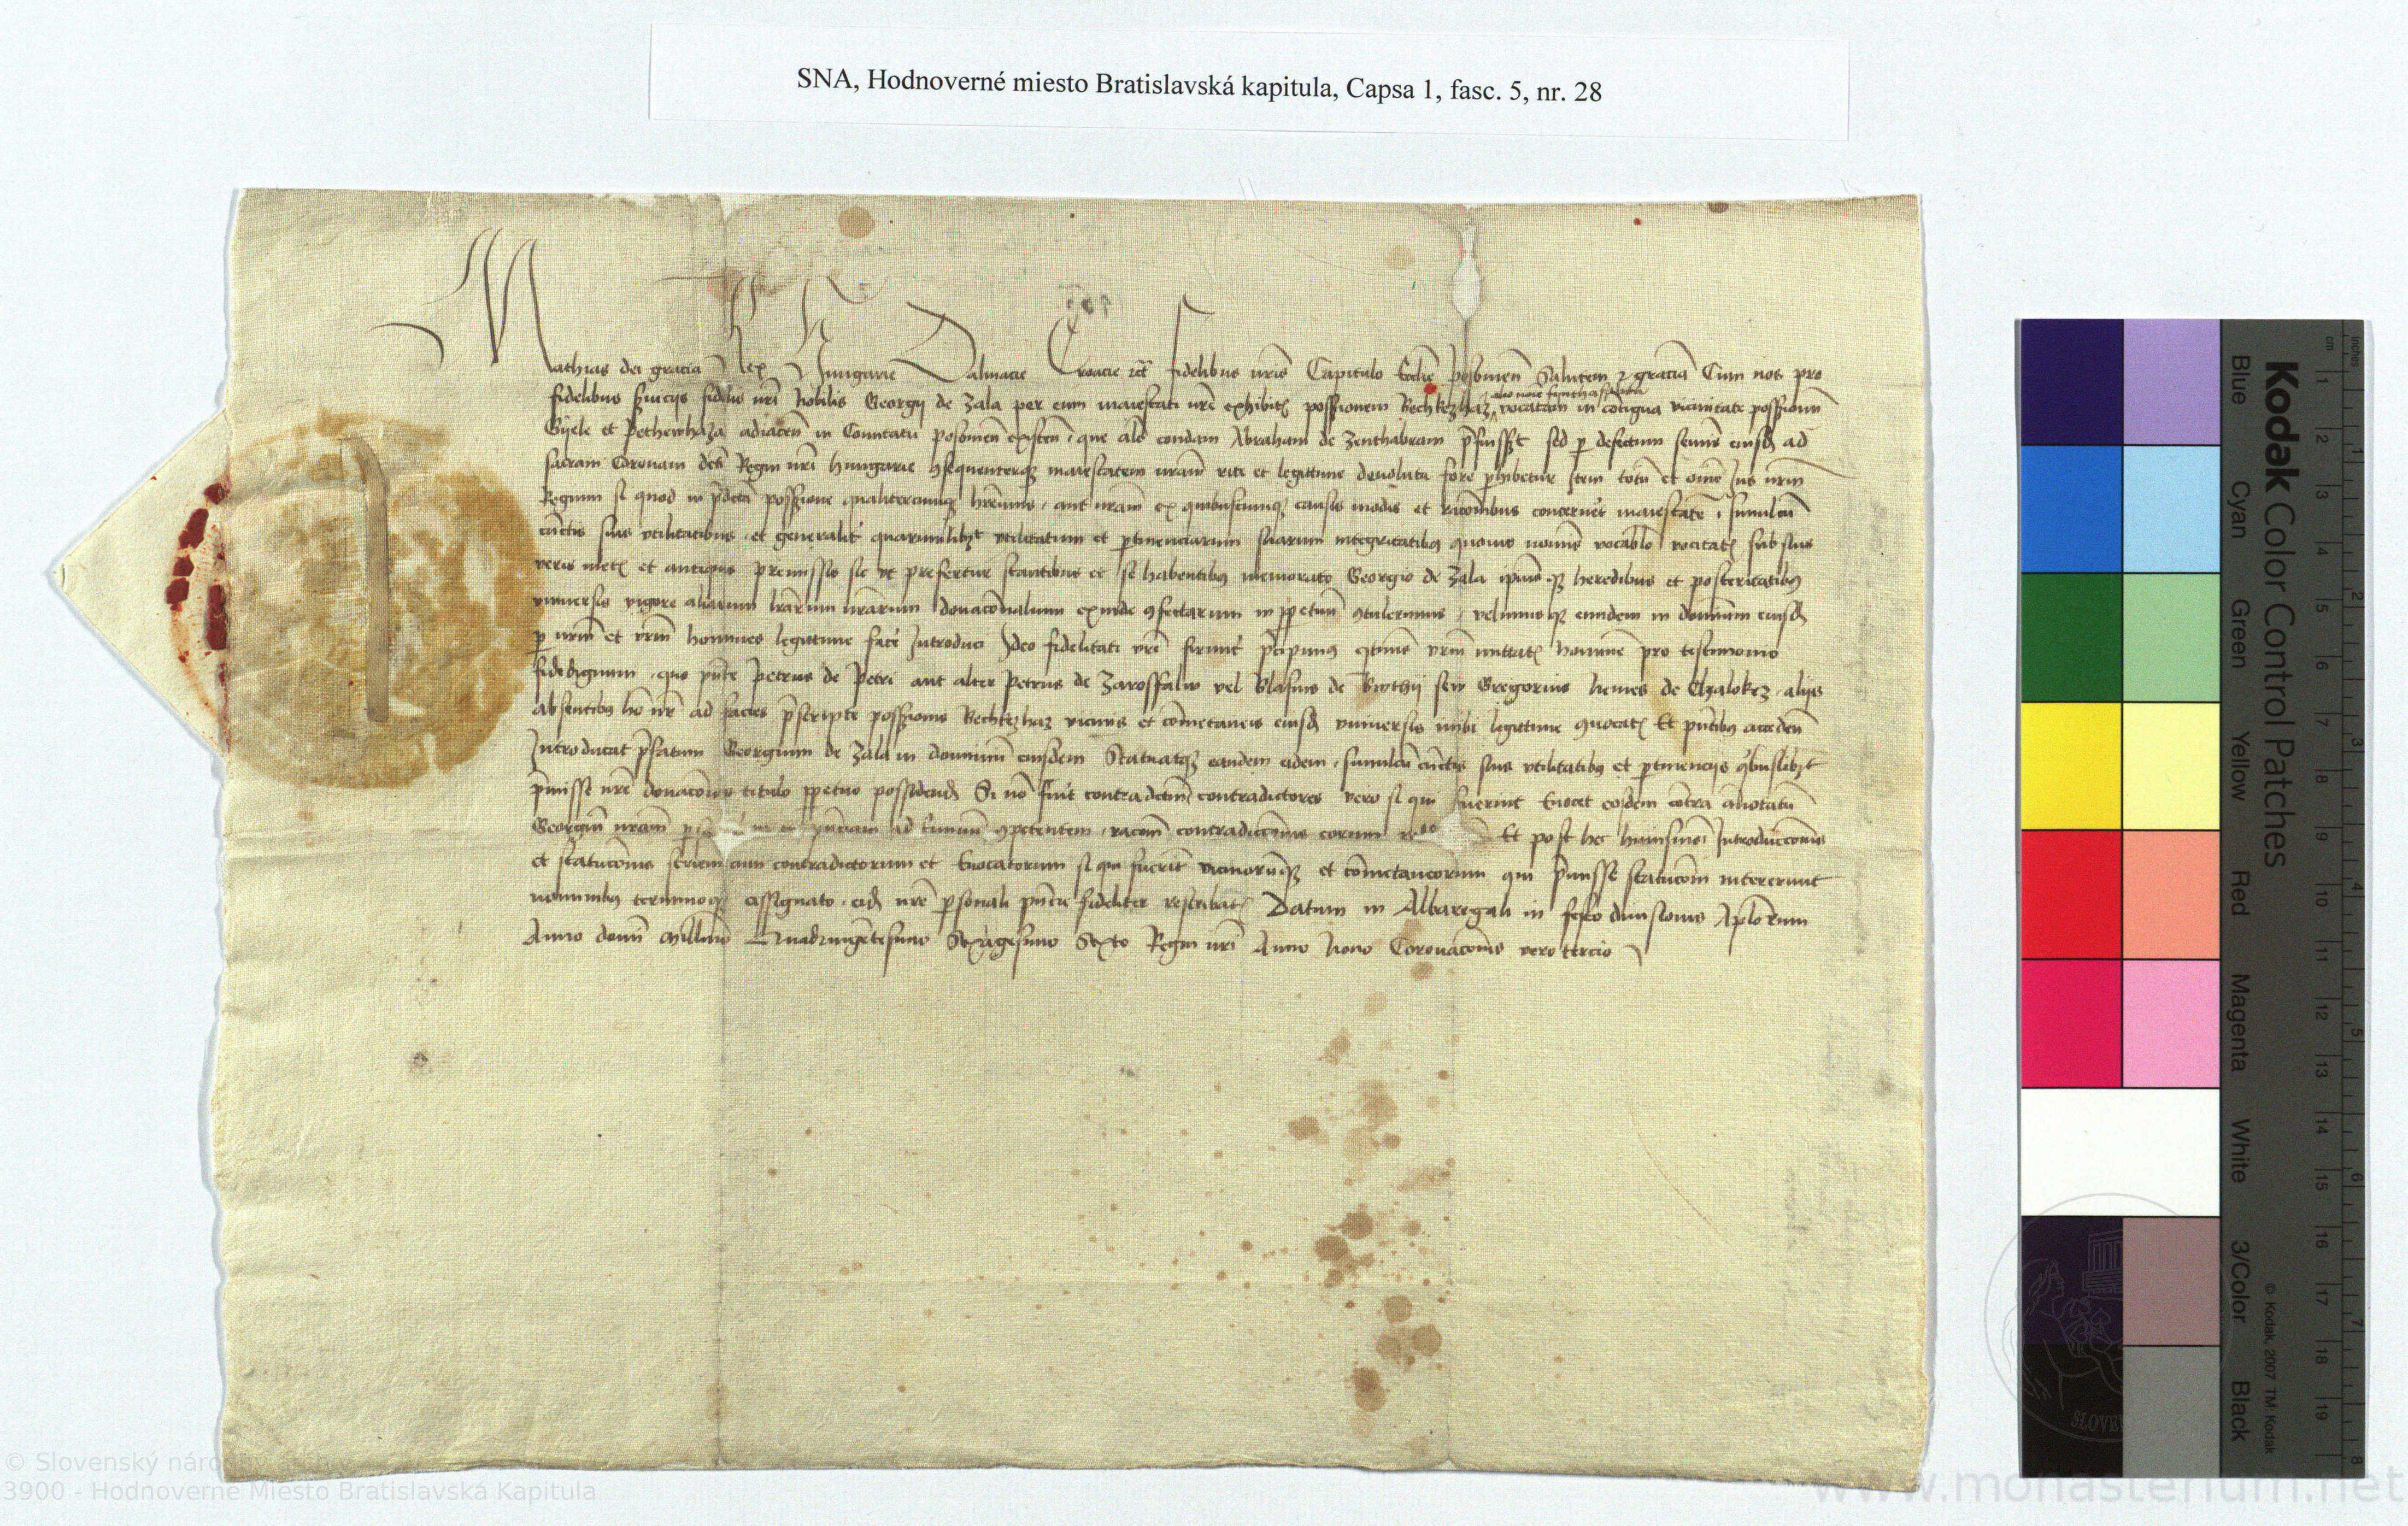 SNA, Hodnoverné miesto Bratislavská kapitula, Capsa 1, fasc. 5, nr. 28
Mathias dei gracia Rex Hungarie Dalmacie Croacie etc̃ fidelibus nr̃is Capitulo Ecclie Posonien̄ Salutem et graciā Cum nos pro
alio noīe
fidelibus fidelis nr̃i Nobilis Georgij de Zala per eum maiestati nr̃e exhibitis possessionem Bechkezhaz vocatam in cōtigua vicinitate possessionū
Gyele et Petherhaza adiacen̄ in Comitatu Posonien̄ existen̄ que al̄s condam Abraham de Zenthabram p̄fuisset sed per defectum semīs eiusdē ad
sacram Coronam dcī Regni nr̃i Hungarie cōsequenterq̨ maiestatem nrām rite et legittime devoluta fore perhibetur Item totū et om̄e Jus nrm̄
Regium si quod in p̄dcā possessione qualitercumq̨ hrēmus aut nrām ex quibuscumq̨ causis modis et racōnibus concerneret maiestatē simulcū
cūctis suis utilitatibus et generalit̄ quarumlibet utilitatum et pertinenciarum suarum integritatibus quovis nomīs vocablo vocitatis sub suis
veris metis et antiquis premissis sic ut prefertur stantibus et se habentibus memorato Georgio de Zala ipiusq̨ heredibus et posteritatibus
universis vigore aliarum lrārum nrārum donacōnalium exinde cōfectarum in perpetuū cōtulerimus velimusq̨ eundem in dominium eiusdē
per nrm̄ et vrm̄ homines legittime facere Introduci Ideo fidelitati vrē firmit̄ p̄cipimus quatinus vrm̄ mittatis hominē pro testimonio
fidedignum quo pn̄te Petrus de Petri aut alter Petrus de Zarosffalw vel Blasius de sew Gregorius Nemes de Chalokez alijs
absentibus hō nr̄ ad facies p̄scripte possessionis Bechkezhaz vicinis et cōmetaneis eiusdē universis inibi legittime cōvocatis Et pn̄tibus acceden̄
Introducat p̄fatum Georgium de Zala in dominiū eiusdem Statuatq̨ eandem eidem simulcū cūctis suis utilitatibus et pertinencijs quibuslibet
p̄misse nrē donacōnis titulo perpetuo possidendā Si nō fuīt contradictum contradictores vero si qui fuerint Evocet eosdem cōtra an̄otatū
Georgiū nrām pn̄ciam ad t̄minū cōpetentem racōm contradiccōnis eorum Et post hec huiusmōi Introduccōnis
et statucōnis seriem cum contradictorum et Evocatorum si qui fuerīt vicinorūq̨ et cōmetaneorum qui p̄misse statucōni intererunt
nominibus terminoq̨ assignato eidē nrē personali pn̄cie fideliter rescribatis Datum in Albaregali in festo divisionis Aplorum
Anno domī Millmō Quadringētesimo Sexagesimo Sexto Regni nr̃i Anno Nono Coronacōnis vero tercio
Kodak Color Control Patches
Blue Cyan Green Yellow Red Magenta White 3/Color Black
© Kodak, 2007 TM: Kodak
cm 1 2 3 4 5 6 7 8 9 10 11 12 13 14 15 16 17 18 19
inches 1 2 3 4 5 6 7 8
© Slovenský národný archív
3900 - Hodnoverné Miesto Bratislavská Kapitula
www.monasterium.net